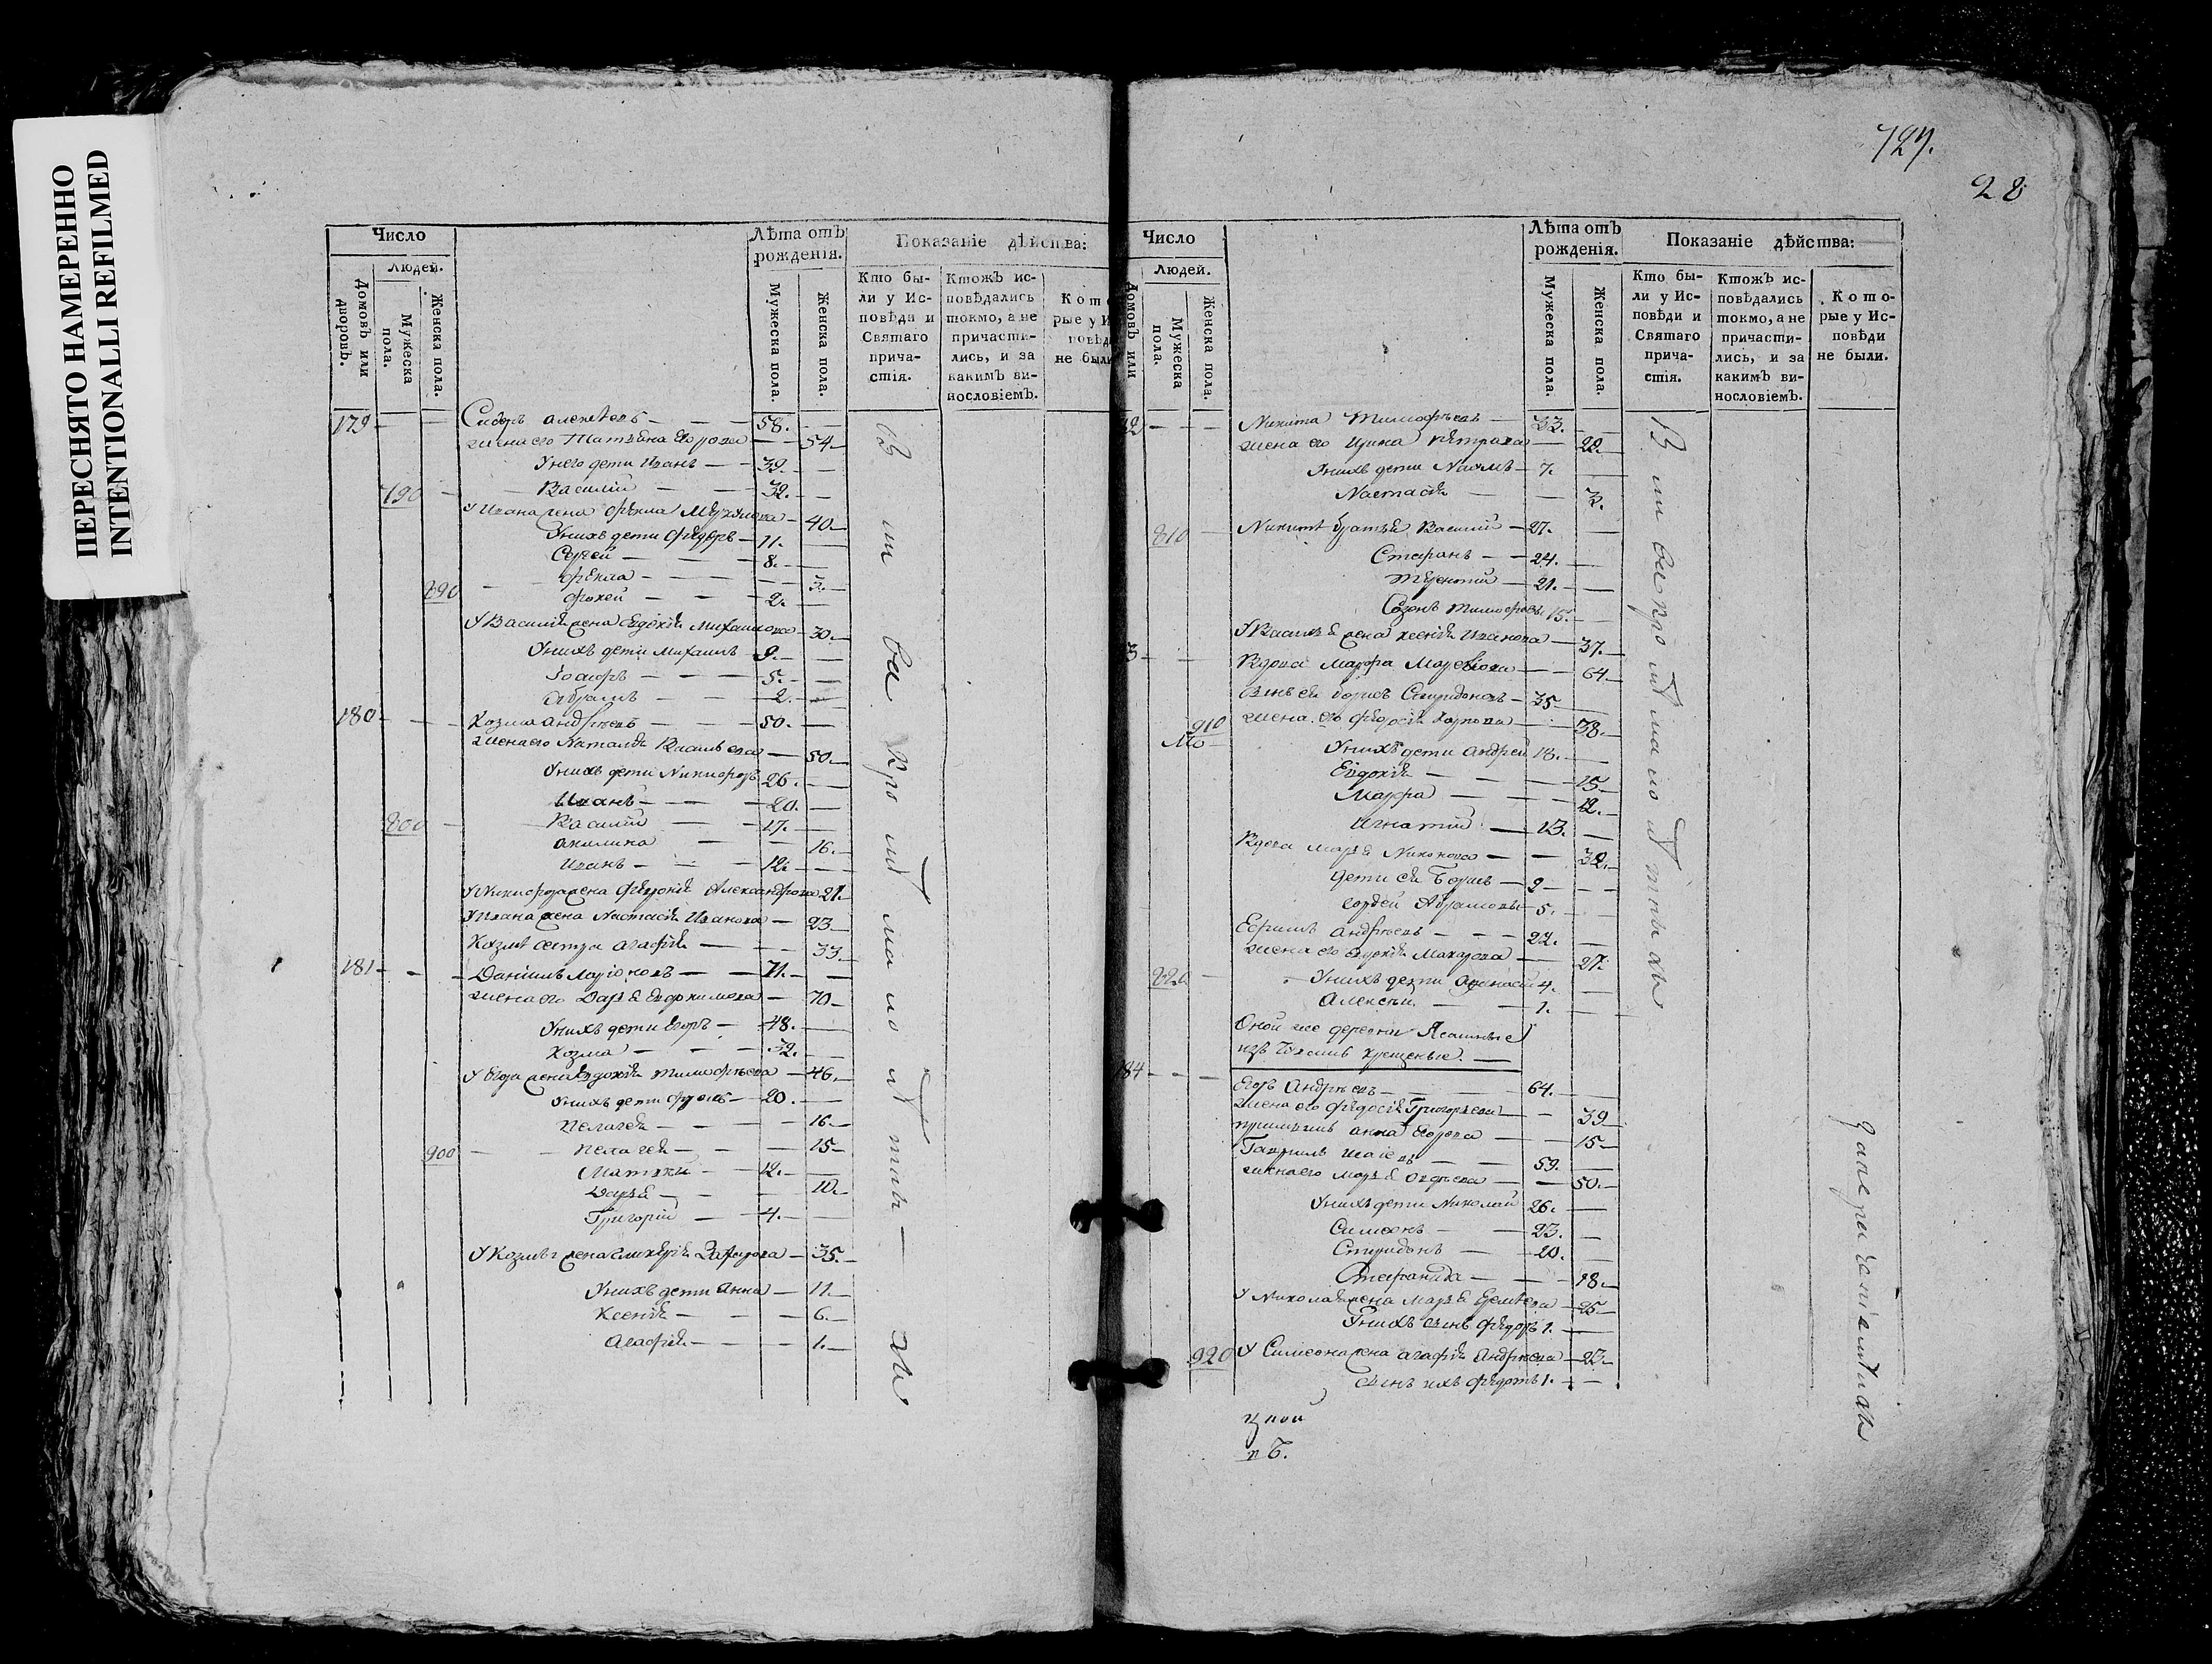 ПЕРЕСНЯТО НАМЕРЕННО
INTENTIONALLI REFILMED
Число
Людей.
Домовъ или дворовъ.
Мужеска пола.
Женска пола.
Лѣта отъ рожденія.
Мужеска пола.
Женска пола.
Показаніе дѣйства:
Кто были у Исповѣди и Святаго причастія.
Ктожъ исповѣдались токмо, а не причастились, и за какимъ винословіемъ.
Которые у Исповѣди не были
179 Сидоръ Алексѣевъ 58.
жена его Татьяна Егорова 54
У него дети Иванъ 39.
790 Василій 32.
У Ивана жена Фекла 40
У нихъ дети Федоръ 11.
Сергей 8.
Фекла 3.
890 Фокей 2.
У Василія жена Евдокія Михаилова 30.
У нихъ дети Михаилъ 9.
5.
Абрамъ 2.
180 Козма Андрѣевъ 50.
жена его Наталія Васильева 50.
У нихъ дети Никифоръ 26.
Иванъ 20.
800 Василій 17.
Акилина 16.
Иванъ 12.
У Никифора жена Александрова 21.
У Ивана жена Настасія Иванова 23
Козмѣ сестра Агафія 33.
181 Даніилъ Ларіоновъ 71.
жена его Дарья Евфкимова 70
У нихъ дети Егоръ 48.
Козма 32.
У Егора жена Евдокія Тимофѣева 46.
У нихъ дети 20.
Пелагея 16.
900 Пелагея 15
Матвей 12.
Дарья 10.
Григорій 4.
У Козмы жена Гликерія 35.
У нихъ дети Анна 11.
Ксенія 6.
Агафія 1.
727.
28
Число
Людей.
Домовъ или
Мужеска пола.
Женска пола.
Лѣта отъ рожденія.
Мужеска пола.
Женска пола.
Показаніе дѣйства:
Кто были у Исповѣди и Святаго причастія.
Ктожъ исповѣдались токмо, а не причастились, и за какимъ винословіемъ.
Которые у Исповѣди не были.
Никита Тимофѣевъ 33.
жена его Ирина Петрова 22.
У нихъ дети Наумъ 7.
Настасія 3.
810 Никитѣ братья Василій 27.
Стефанъ 24.
Терентій 21.
Созонъ Тимофѣевъ 15.
У Василья жена Ксенія Иванова 37.
Вдова Марфа 64
сынъ ея Борисъ Спиридоновъ 35
910 жена его Федосія Карпова 38.
У нихъ дети Андрей 18.
Евдокія 15
Марфа 12.
Игнатій 13.
Вдова Марья Никонова 32.
Дети ея Борисъ 9
Гордей Абрамовы 5.
Ефримъ Андрѣевъ 22.
жена его Евдокія Макарова 27.
820 У нихъ дети Афанасій 4.
Алексѣй 1.
Оной же деревни Ясашные
изъ крещеные.
184 Егоръ Андрѣевъ 64.
жена его Федосія Григорьева 39
Анна Егорова 15
Гавриилъ Исаіевъ 59.
жена его Марья 50.
У нихъ дети Николай 26.
Симеонъ 23.
Спиридонъ 20.
Стефанида 18.
У Николая жена Марья Еремѣева 25
У нихъ сынъ Федоръ 1.
920 У Симеона жена Агафія Андрѣева 23
Сынъ ихъ Федотъ 1.